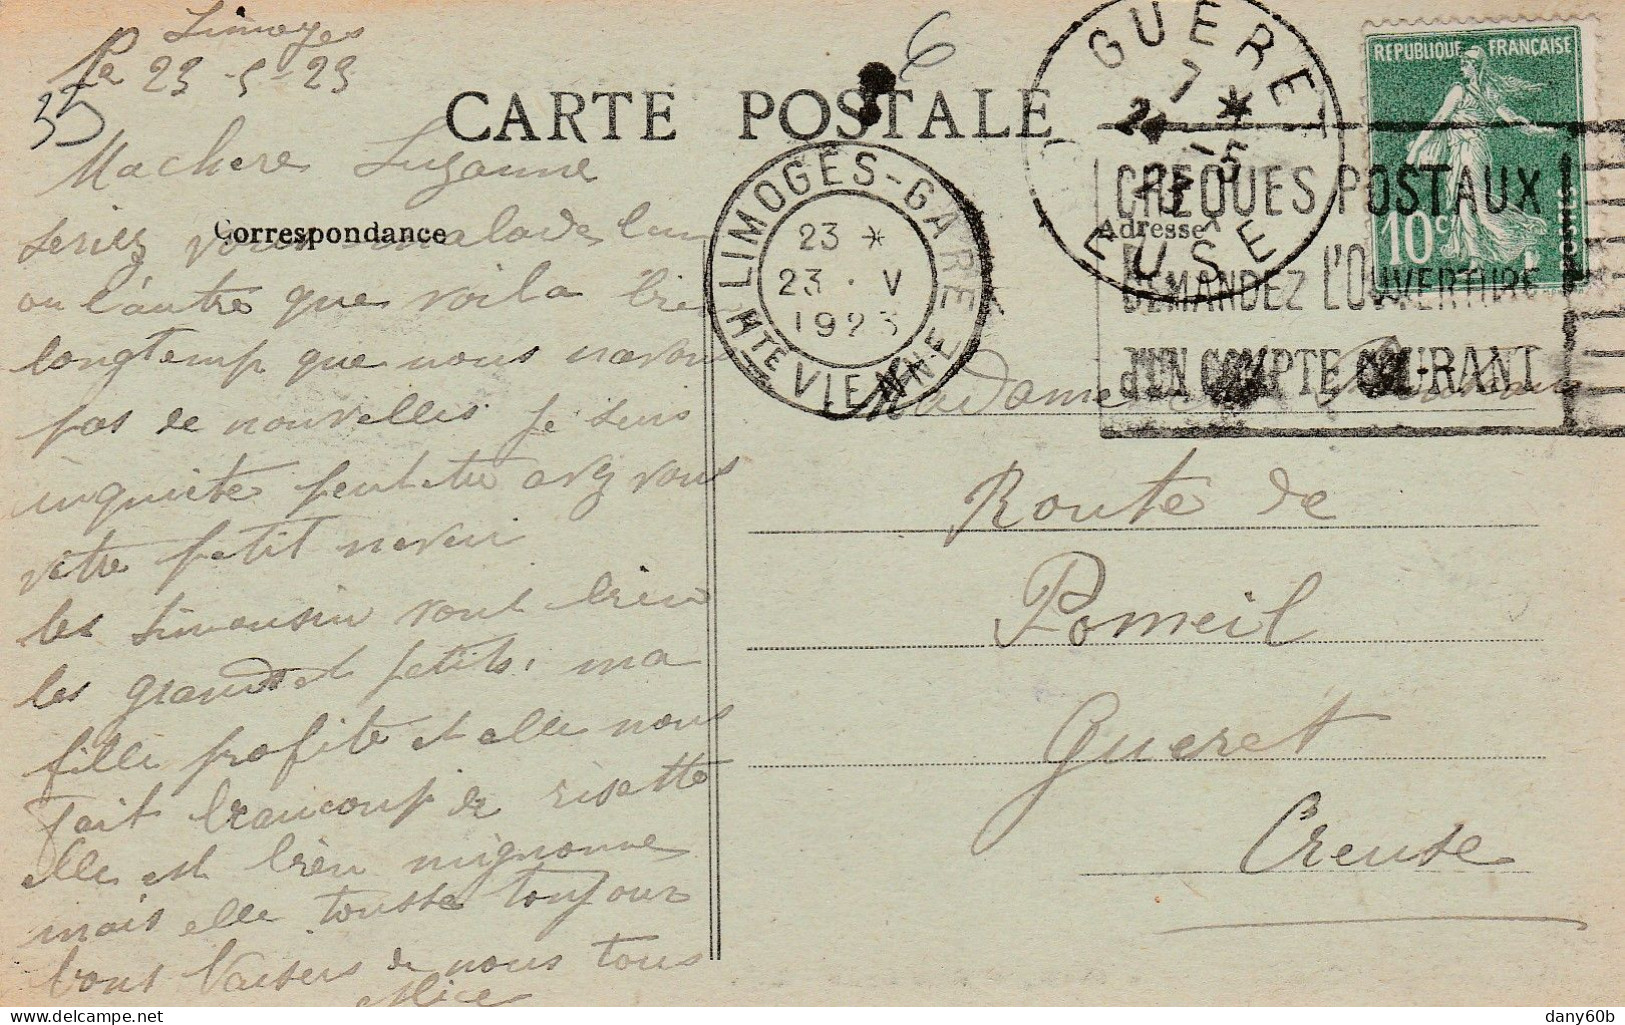 Limoges
Le 23-5-23
35
6
CARTE POSTALE
Correspondance
Adresse
REPUBLIQUE FRANÇAISE
10c
GUERET
7 *
24 -5
23
CREUSE
LIMOGES-GARE
23 *
23 · V
1923
HTE VIENNE
CHEQUES POSTAUX
DEMANDEZ L'OUVERTURE
D'UN COMPTE COURANT
Ma chere Suzanne
seriez vous malade l'un
ou l'autre que voila bien
longtemp que nous navons
pas de nouvelles je suis
inquiete peut etre avez vous
votre petit neveu
les Limousin vont bien
les grands et petits, ma
fille profite et elle nous
fait beaucoup de risette
elle est bien mignonne
mais elle tousse toujour
bons baisers de nous tous
Alice
Madame
Route de
Pomeil
Gueret
Creuse
delcampe.net
dany60b